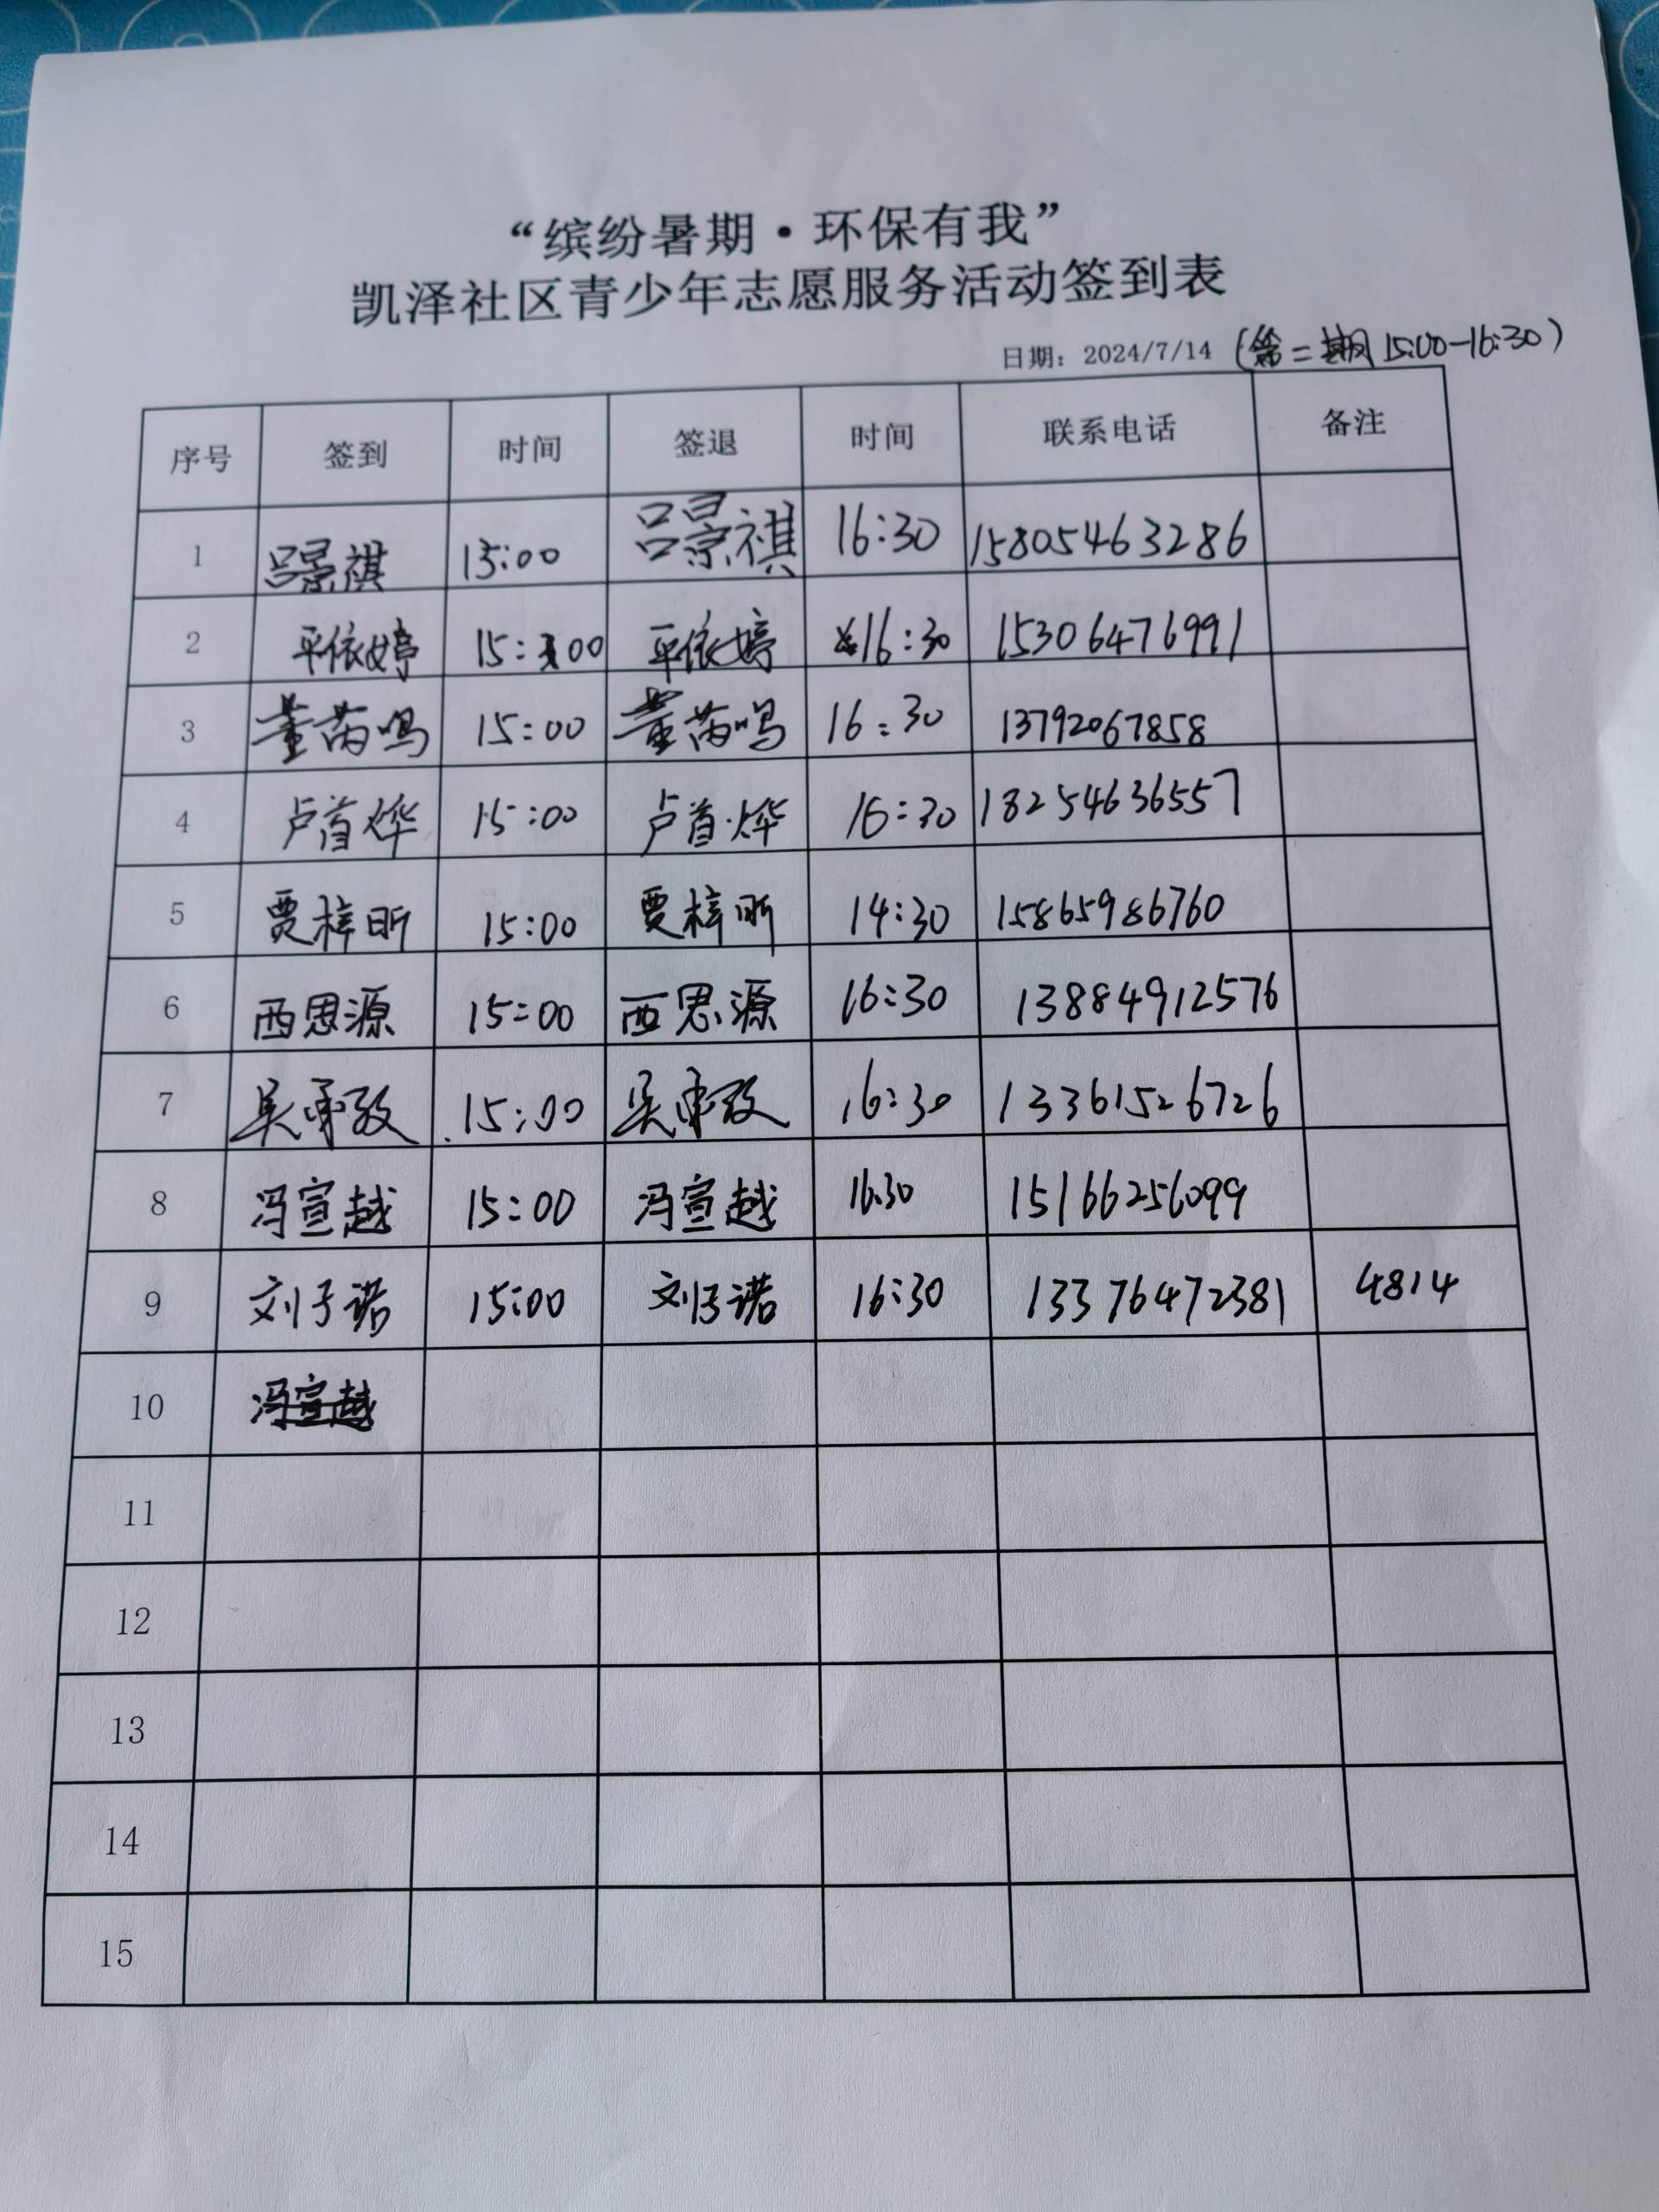 “缤纷暑期·环保有我”
凯泽社区青少年志愿服务活动签到表
日期：2024/7/14 (第二期15:00-16:30)
序号 签到 时间 签退 时间 联系电话 备注
1 吕景祺 15:00 吕景祺 16:30 15805463286
2 平依婷 15:00 平依婷 16:30 15306476991
3 董苗鸣 15:00 董苗鸣 16:30 13792067858
4 卢首烨 15:00 卢首烨 16:30 18254636557
5 贾梓昕 15:00 贾梓昕 14:30 15865986760
6 西思源 15:00 西思源 16:30 13884912576
7 吴承致 15:00 吴承致 16:30 13361526726
8 冯宣越 15:00 冯宣越 16:30 15166256099
9 刘子诺 15:00 刘子诺 16:30 13376472381 4814
10 冯宣越
11
12
13
14
15